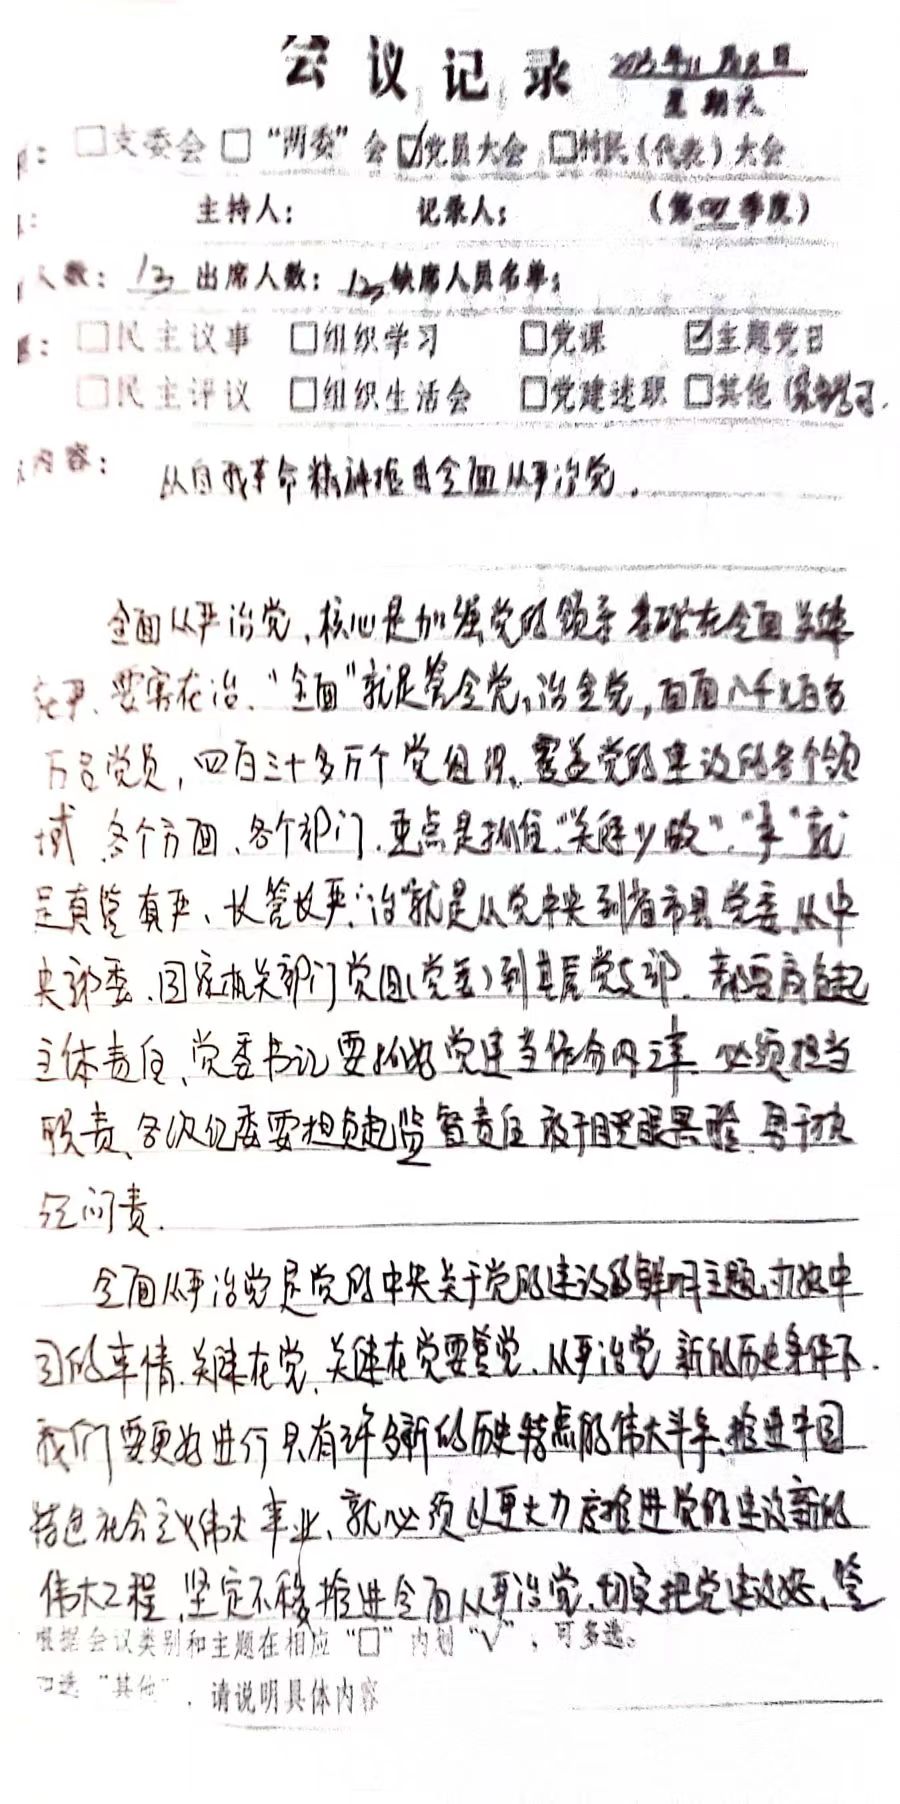 会议记录 年11月18日
星期六
：□支委会 □“两委”会 ☑党员大会 □村民（代表）大会
： 主持人： 记录人： （第四季度）
人数：13 出席人数：13 缺席人员名单：
：□民主议事 □组织学习 □党课 ☑主题党日
□民主评议 □组织生活会 □党建述职 □其他
内容：从自我革命精神推进全面从严治党.
全面从严治党,核心是加强党的领导 基础在全面 关键
在严、要害在治.“全面”就是管全党,治全党,面面八千九百多
万名党员,四百三十多万个党组织,覆盖党的建设的各个领
域 各个方面、各个部门.重点是抓住“关键少数”.“严”就
是真管真严、长管长严;“治”就是从党中央到省市县党委,从中
央部委、国家机关部门党组(党委)到基层党支部.都要肩负起
主体责任、党委书记要抓好党建当作分内之事 必须担当
职责、各次纪委要担负起监督责任 敢于瞪眼黑脸 勇于执
纪问责.
全面从严治党是党的中央关于党的建设的鲜明主题,办好中
国的事情.关键在党,关键在党要管党、从严治党 新的历史条件下.
我们要更好进行具有许多新的历史特点的伟大斗争、推进中国
特色社会主义伟大事业、就必须以更大力度推进党的建设新的
伟大工程,坚定不移推进全面从严治党,切实把党建设好、管
根据会议类别和主题在相应“□”内划“√”，可多选。
如选“其他”，请说明具体内容